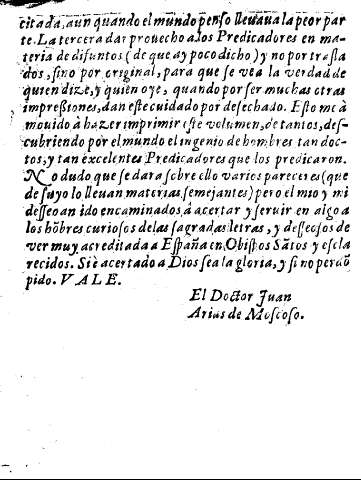 citada, aun quando el mundo penso lleuaua la peor par
te. La tercera dar prouecho a los Predicadores en ma-
teria de difuntos (de que ay poco dicho) y no por trasla
dos, sino por original, para que se vea la verdad de
quien dize, y quien oye, quando por ser muchas otras
impreßiones, dan este cuidado por desechado. Esto me à
mouido à hazer imprimir este volumen, de tantos, des-
cubriendo por el mundo el ingenio de hombres tan doc-
tos, y tan excelentes Predicadores que los predicaron.
No dudo que se dara sobre ello varios pareceres (que
de suyo lo lleuan materias semejantes) pero el mio y mi
desseo an ido encaminados, à acertar y seruir en algo a
los hõbres curiosos de las sagradas letras, y desseosos de
ver muy acreditada a España en Obispos Sãtos y escla
recidos. Si è acertado a Dios sea la gloria, y si no perdõ
pido. VALE.
El Doctor Juan
Arias de Moscoso.